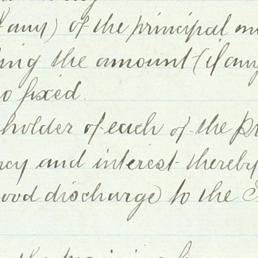 any) of the principal m
ing the amount (if any
o fixed.
holder of each of the pr
cy and interest thereby
ood discharge) to the